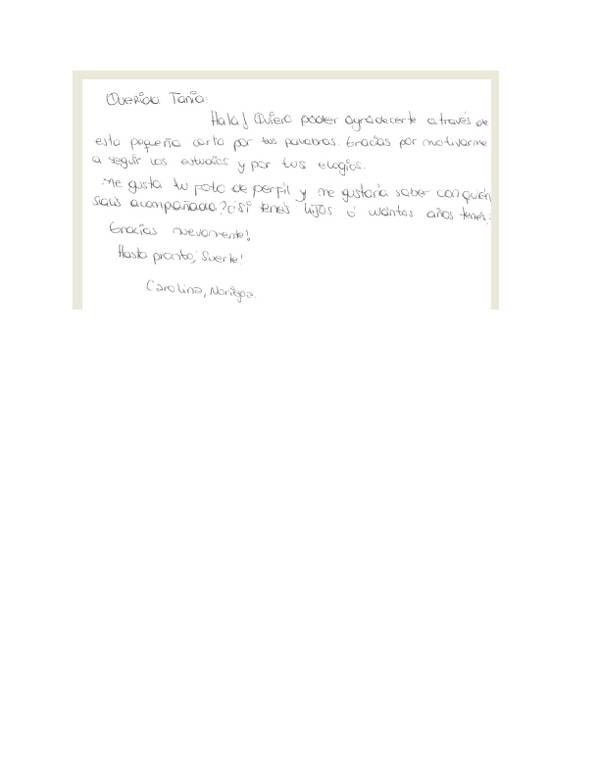 Querida Tania:
Hola! Quiero poder agradecerte a través de
esta pequeña carta por tus palabras. Gracias por motivarme
a seguir los estudios y por tus elogios.
Me gusta tu foto de perfil y me gustaría saber con quién
acompañada? ¿Si tenes hijos o cuantos años tenes.
Gracias nuevamente!
Hasta pronto, Suerte!
Carolina,